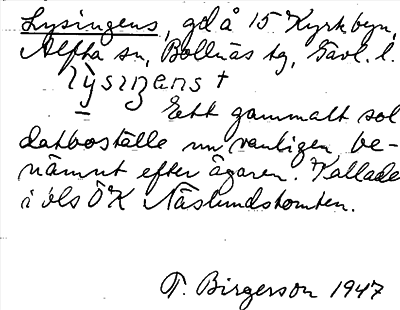 Lysingens, gd å 15 Kyrkbyn,
Alfta sn, Bollnäs tg, Gävl. l.
Ett gammalt sol
datboställe nu vanligen be-
nämnt efter ägaren. Kallade
i ÖK Näslundstomten.
T. Birgerson 1947